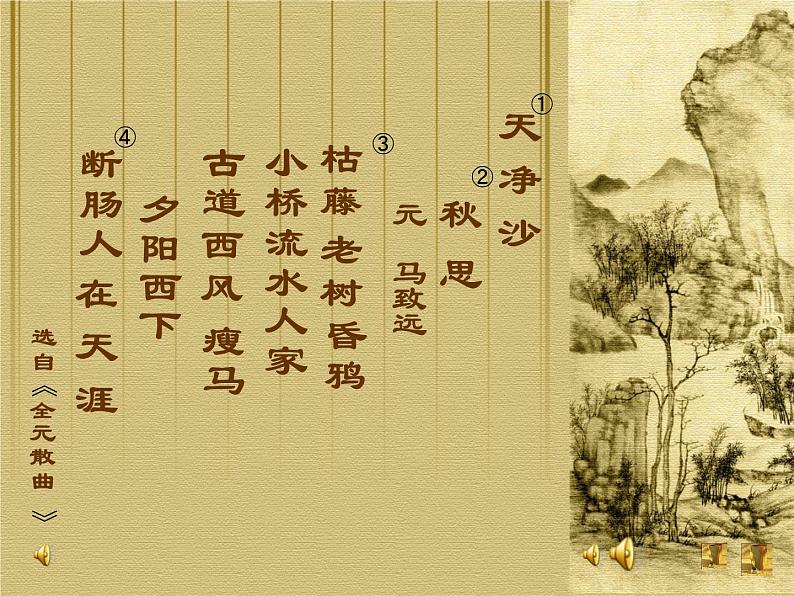 天净沙①
②秋思
元 马致远
③枯藤老树昏鸦
小桥流水人家
古道西风瘦马
夕阳西下
④断肠人在天涯
选自《全元散曲》